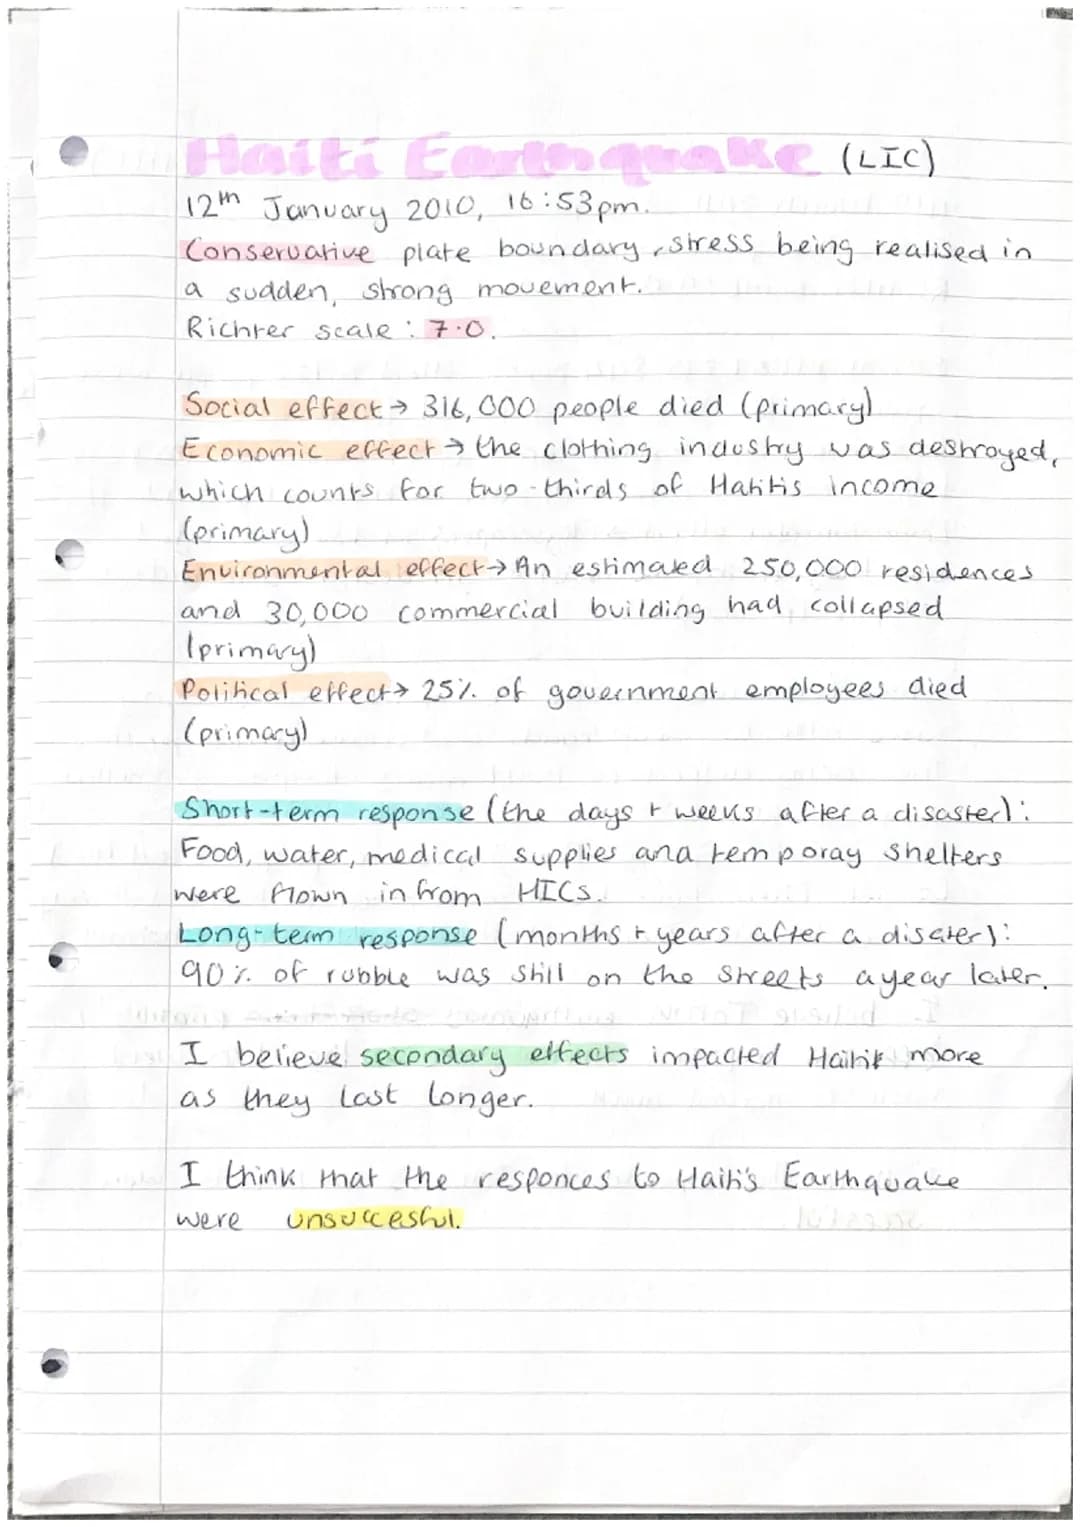 Haiti Earthquake (LIC)
12th January 2010, 16:53pm.
Conservative plate boundary, stress being realised in
a sudden, strong movement.
Richter scale: 7.0.
Social effect → 316,000 people died (primary)
Economic effect → the clothing industry was destroyed,
which counts for two-thirds of Hahitis income
(primary)
Environmental effect → An estimated 250,000 residences
and 30,000 commercial building had collapsed
(primary)
Political effect → 25% of government employees died
(primary)
Short-term response (the days + weeks after a disaster):
Food, water, medical supplies and temporay shelters
were flown in from HICs.
Long-term response (months + years after a disater):
90% of rubble was still on the streets a year later.
I believe secondary effects impacted Haiti more
as they last longer.
I think that the responces to Haiti's Earthquake
were unsuccesful.